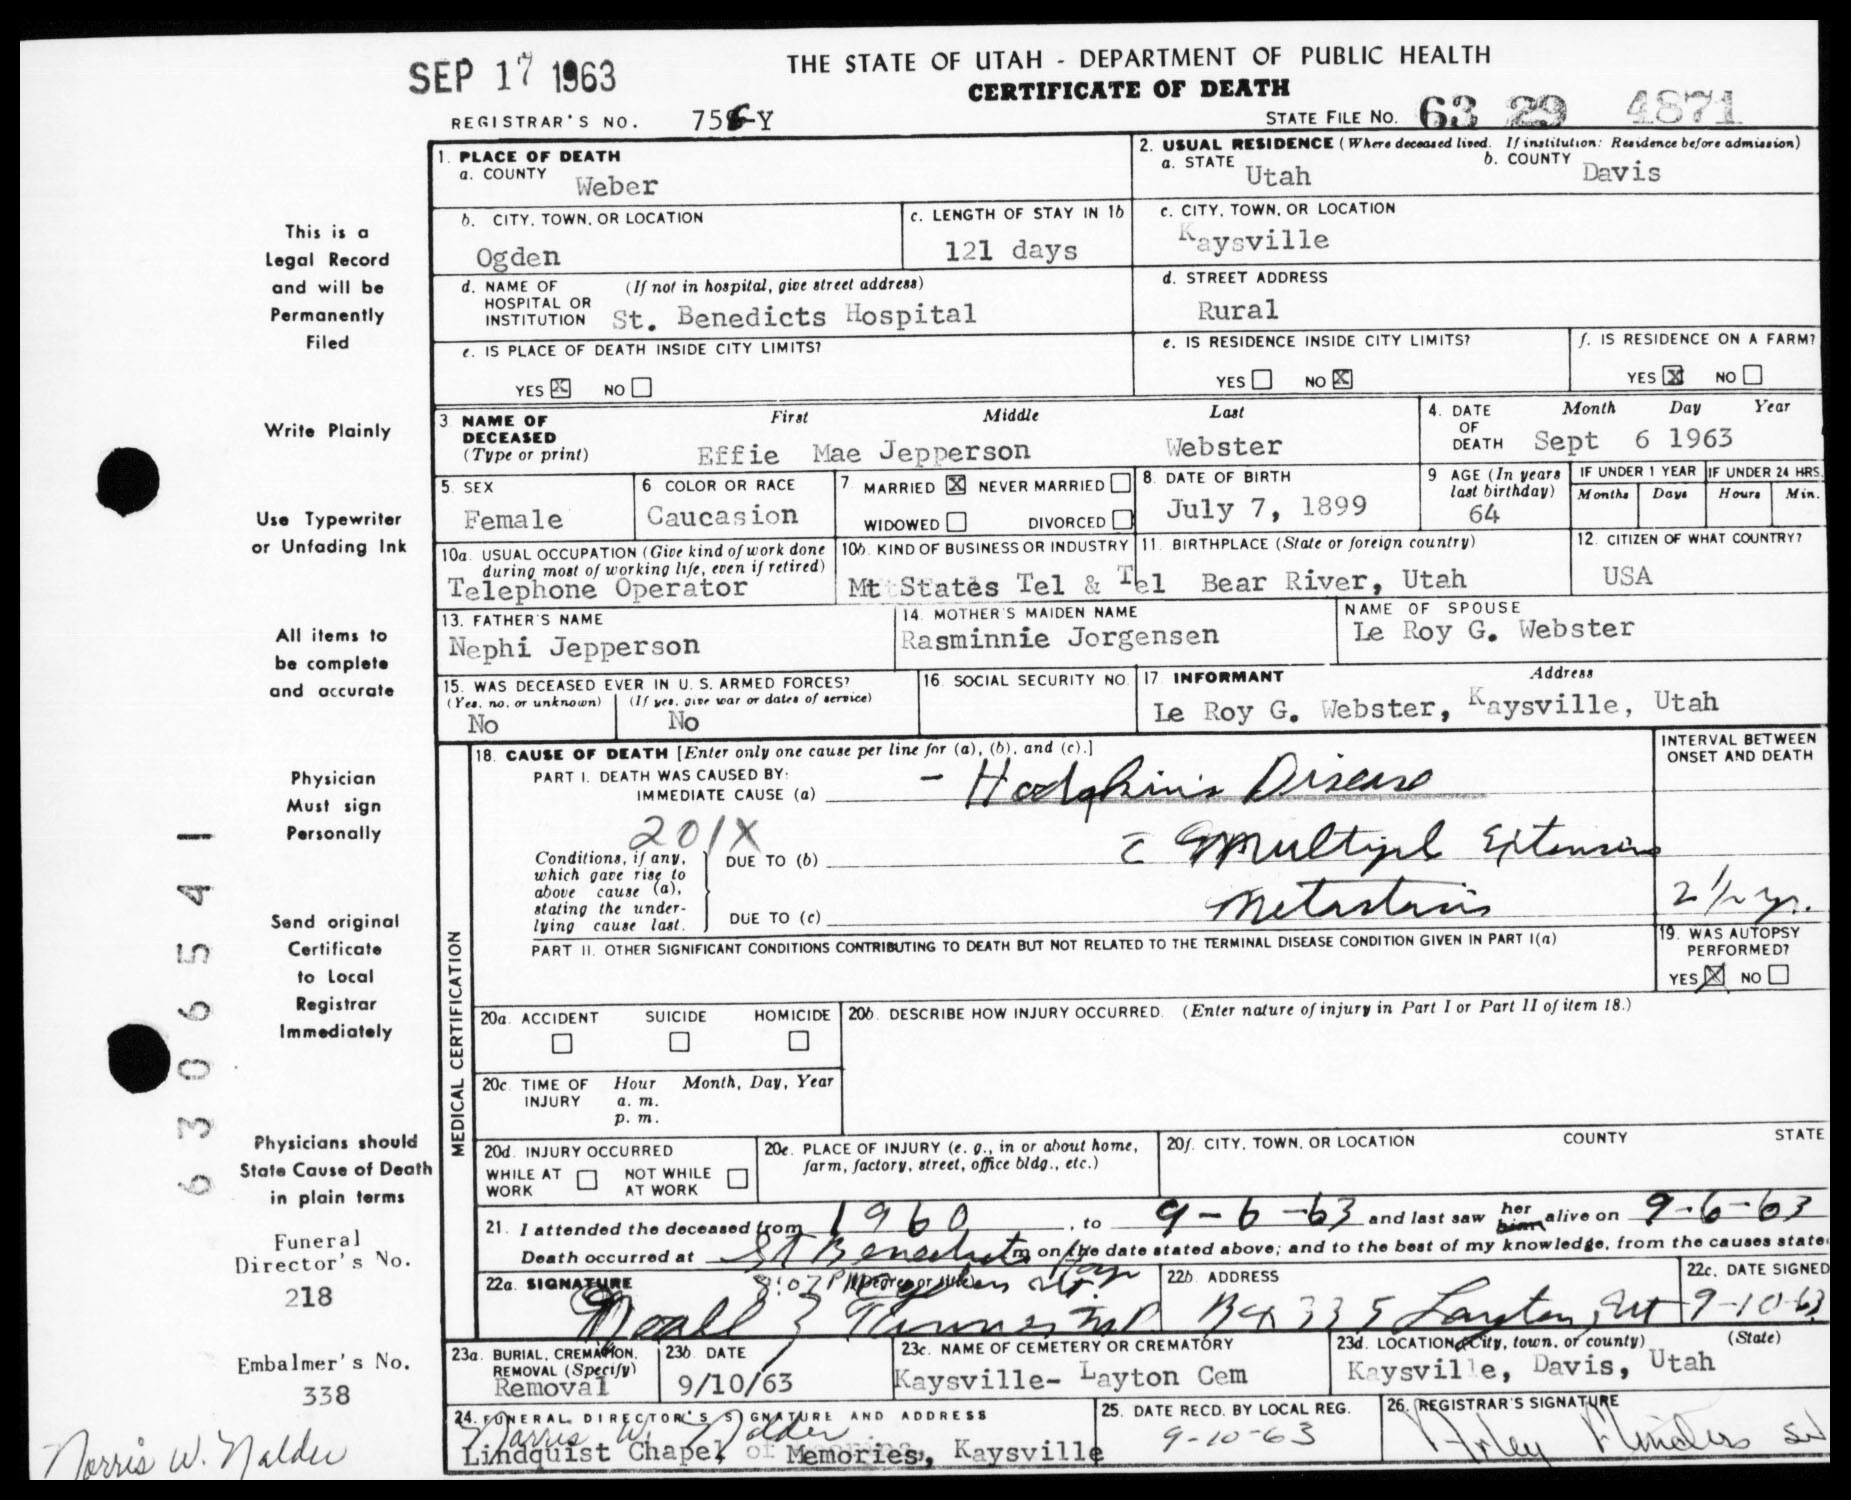 SEP 17 1963
THE STATE OF UTAH - DEPARTMENT OF PUBLIC HEALTH
CERTIFICATE OF DEATH
REGISTRAR'S NO. 756-Y
STATE FILE NO. 63 29 4871
1. PLACE OF DEATH
a. COUNTY Weber
2. USUAL RESIDENCE (Where deceased lived. If institution: Residence before admission)
a. STATE Utah b. COUNTY Davis
b. CITY, TOWN, OR LOCATION
Ogden
c. LENGTH OF STAY IN 1b
121 days
c. CITY, TOWN, OR LOCATION
Kaysville
d. NAME OF HOSPITAL OR INSTITUTION (If not in hospital, give street address)
St. Benedicts Hospital
d. STREET ADDRESS
Rural
e. IS PLACE OF DEATH INSIDE CITY LIMITS?
YES X NO
e. IS RESIDENCE INSIDE CITY LIMITS?
YES NO X
f. IS RESIDENCE ON A FARM?
YES X NO
3. NAME OF DECEASED (Type or print)
First Middle Last
Effie Mae Jepperson Webster
4. DATE OF DEATH
Month Day Year
Sept 6 1963
5. SEX
Female
6. COLOR OR RACE
Caucasion
7. MARRIED X NEVER MARRIED
WIDOWED DIVORCED
8. DATE OF BIRTH
July 7, 1899
9 AGE (In years last birthday)
64
IF UNDER 1 YEAR
Months Days
IF UNDER 24 HRS.
Hours Min.
10a. USUAL OCCUPATION (Give kind of work done during most of working life, even if retired)
Telephone Operator
10b. KIND OF BUSINESS OR INDUSTRY
Mt States Tel & Tel
11. BIRTHPLACE (State or foreign country)
Bear River, Utah
12. CITIZEN OF WHAT COUNTRY?
USA
13. FATHER'S NAME
Nephi Jepperson
14. MOTHER'S MAIDEN NAME
Rasminnie Jorgensen
NAME OF SPOUSE
Le Roy G. Webster
15. WAS DECEASED EVER IN U. S. ARMED FORCES?
(Yes, no, or unknown) (If yes, give war or dates of service)
No No
16. SOCIAL SECURITY NO.
17. INFORMANT Address
Le Roy G. Webster, Kaysville, Utah
MEDICAL CERTIFICATION
18. CAUSE OF DEATH [Enter only one cause per line for (a), (b), and (c).]
INTERVAL BETWEEN ONSET AND DEATH
PART I. DEATH WAS CAUSED BY:
IMMEDIATE CAUSE (a) - Hodgkin's Disease
201X
Conditions, if any, which gave rise to above cause (a), stating the underlying cause last.
DUE TO (b) c Multiple Extensive
DUE TO (c) Metastasis
2 1/2 yr.
PART II. OTHER SIGNIFICANT CONDITIONS CONTRIBUTING TO DEATH BUT NOT RELATED TO THE TERMINAL DISEASE CONDITION GIVEN IN PART I(a)
19. WAS AUTOPSY PERFORMED?
YES X NO
20a. ACCIDENT SUICIDE HOMICIDE
20b. DESCRIBE HOW INJURY OCCURRED. (Enter nature of injury in Part I or Part II of item 18.)
20c. TIME OF INJURY
Hour Month, Day, Year
a. m.
p. m.
20d. INJURY OCCURRED
WHILE AT WORK NOT WHILE AT WORK
20e. PLACE OF INJURY (e. g., in or about home, farm, factory, street, office bldg., etc.)
20f. CITY, TOWN, OR LOCATION COUNTY STATE
21. I attended the deceased from 1960, to 9-6-63 and last saw her him alive on 9-6-63
Death occurred at St Benedicts Hosp m on the date stated above; and to the best of my knowledge, from the causes state
8:07 PM Ogden Ut.
22a. SIGNATURE (Degree or title)
Noall Z Tanner M.D.
22b. ADDRESS
Box 335 Layton, Ut
22c. DATE SIGNED
9-10-63
23a. BURIAL, CREMATION, REMOVAL (Specify)
Removal
23b. DATE
9/10/63
23c. NAME OF CEMETERY OR CREMATORY
Kaysville- Layton Cem
23d. LOCATION (City, town, or county) (State)
Kaysville, Davis, Utah
24. FUNERAL DIRECTOR'S SIGNATURE AND ADDRESS
Norris W. Nalder
Lindquist Chapel of Memories, Kaysville
25. DATE RECD. BY LOCAL REG.
9-10-63
26. REGISTRAR'S SIGNATURE
This is a
Legal Record
and will be
Permanently
Filed
Write Plainly
Use Typewriter
or Unfading Ink
All items to
be complete
and accurate
Physician
Must sign
Personally
Send original
Certificate
to Local
Registrar
Immediately
Physicians should
State Cause of Death
in plain terms
Funeral
Director's No.
218
Embalmer's No.
338
Norris W. Nalder
63065541